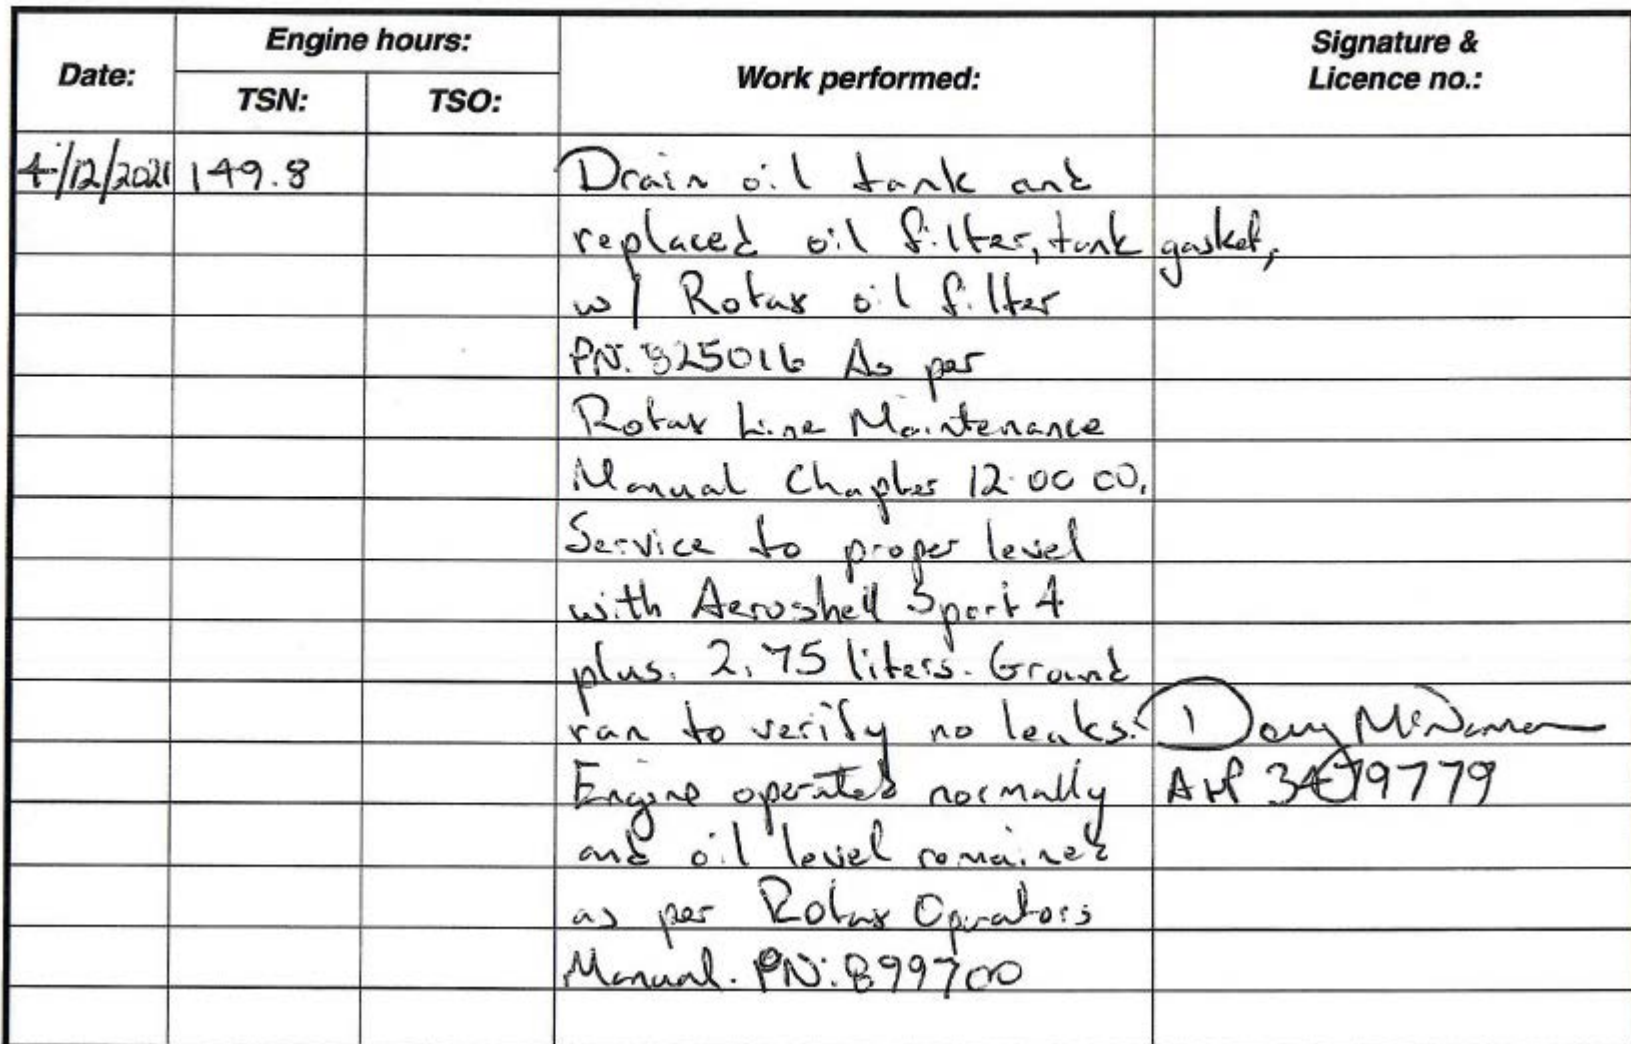 Date:
Engine hours:
TSN:
TSO:
Work performed:
Signature &
Licence no.:
4/12/2021 149.8 Drain oil tank and
replaced oil filter, tank gasket,
w/ Rotax oil filter
PN. 825016 As per
Rotax Line Maintenance
Manual Chapter 12 00 00.
Service to proper level
with Aeroshell Sport 4
plus. 2.75 liters. Ground
ran to verify no leaks. Doug
Engine operated normally A&P 3479779
and oil level remained
as per Rotax Operators
Manual. PN: 899700